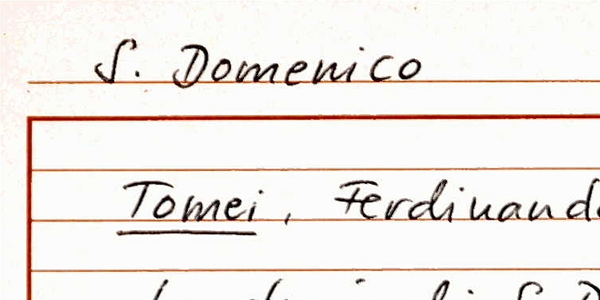 S. Domenico
Tomei, Ferdinand
di S.